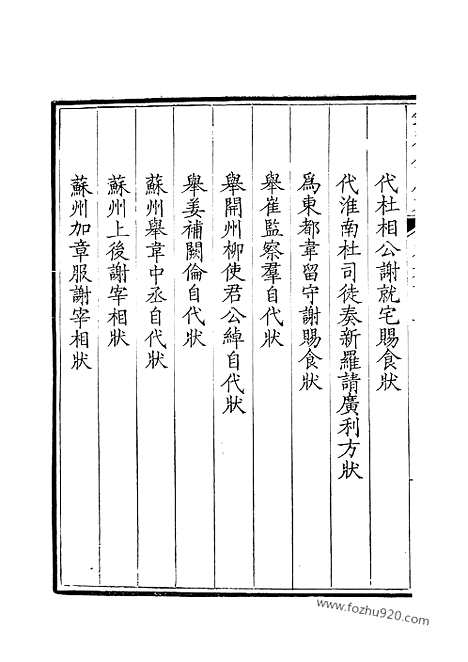 代杜相公謝就宅賜食狀
代淮南杜司徒奏新羅請廣利方狀
爲東都韋留守謝賜食狀
舉崔監察羣自代狀
舉開州柳使君公綽自代狀
舉姜補闕倫自代狀
蘇州舉韋中丞自代狀
蘇州上後謝宰相狀
蘇州加章服謝宰相狀
www.fozhu920.com